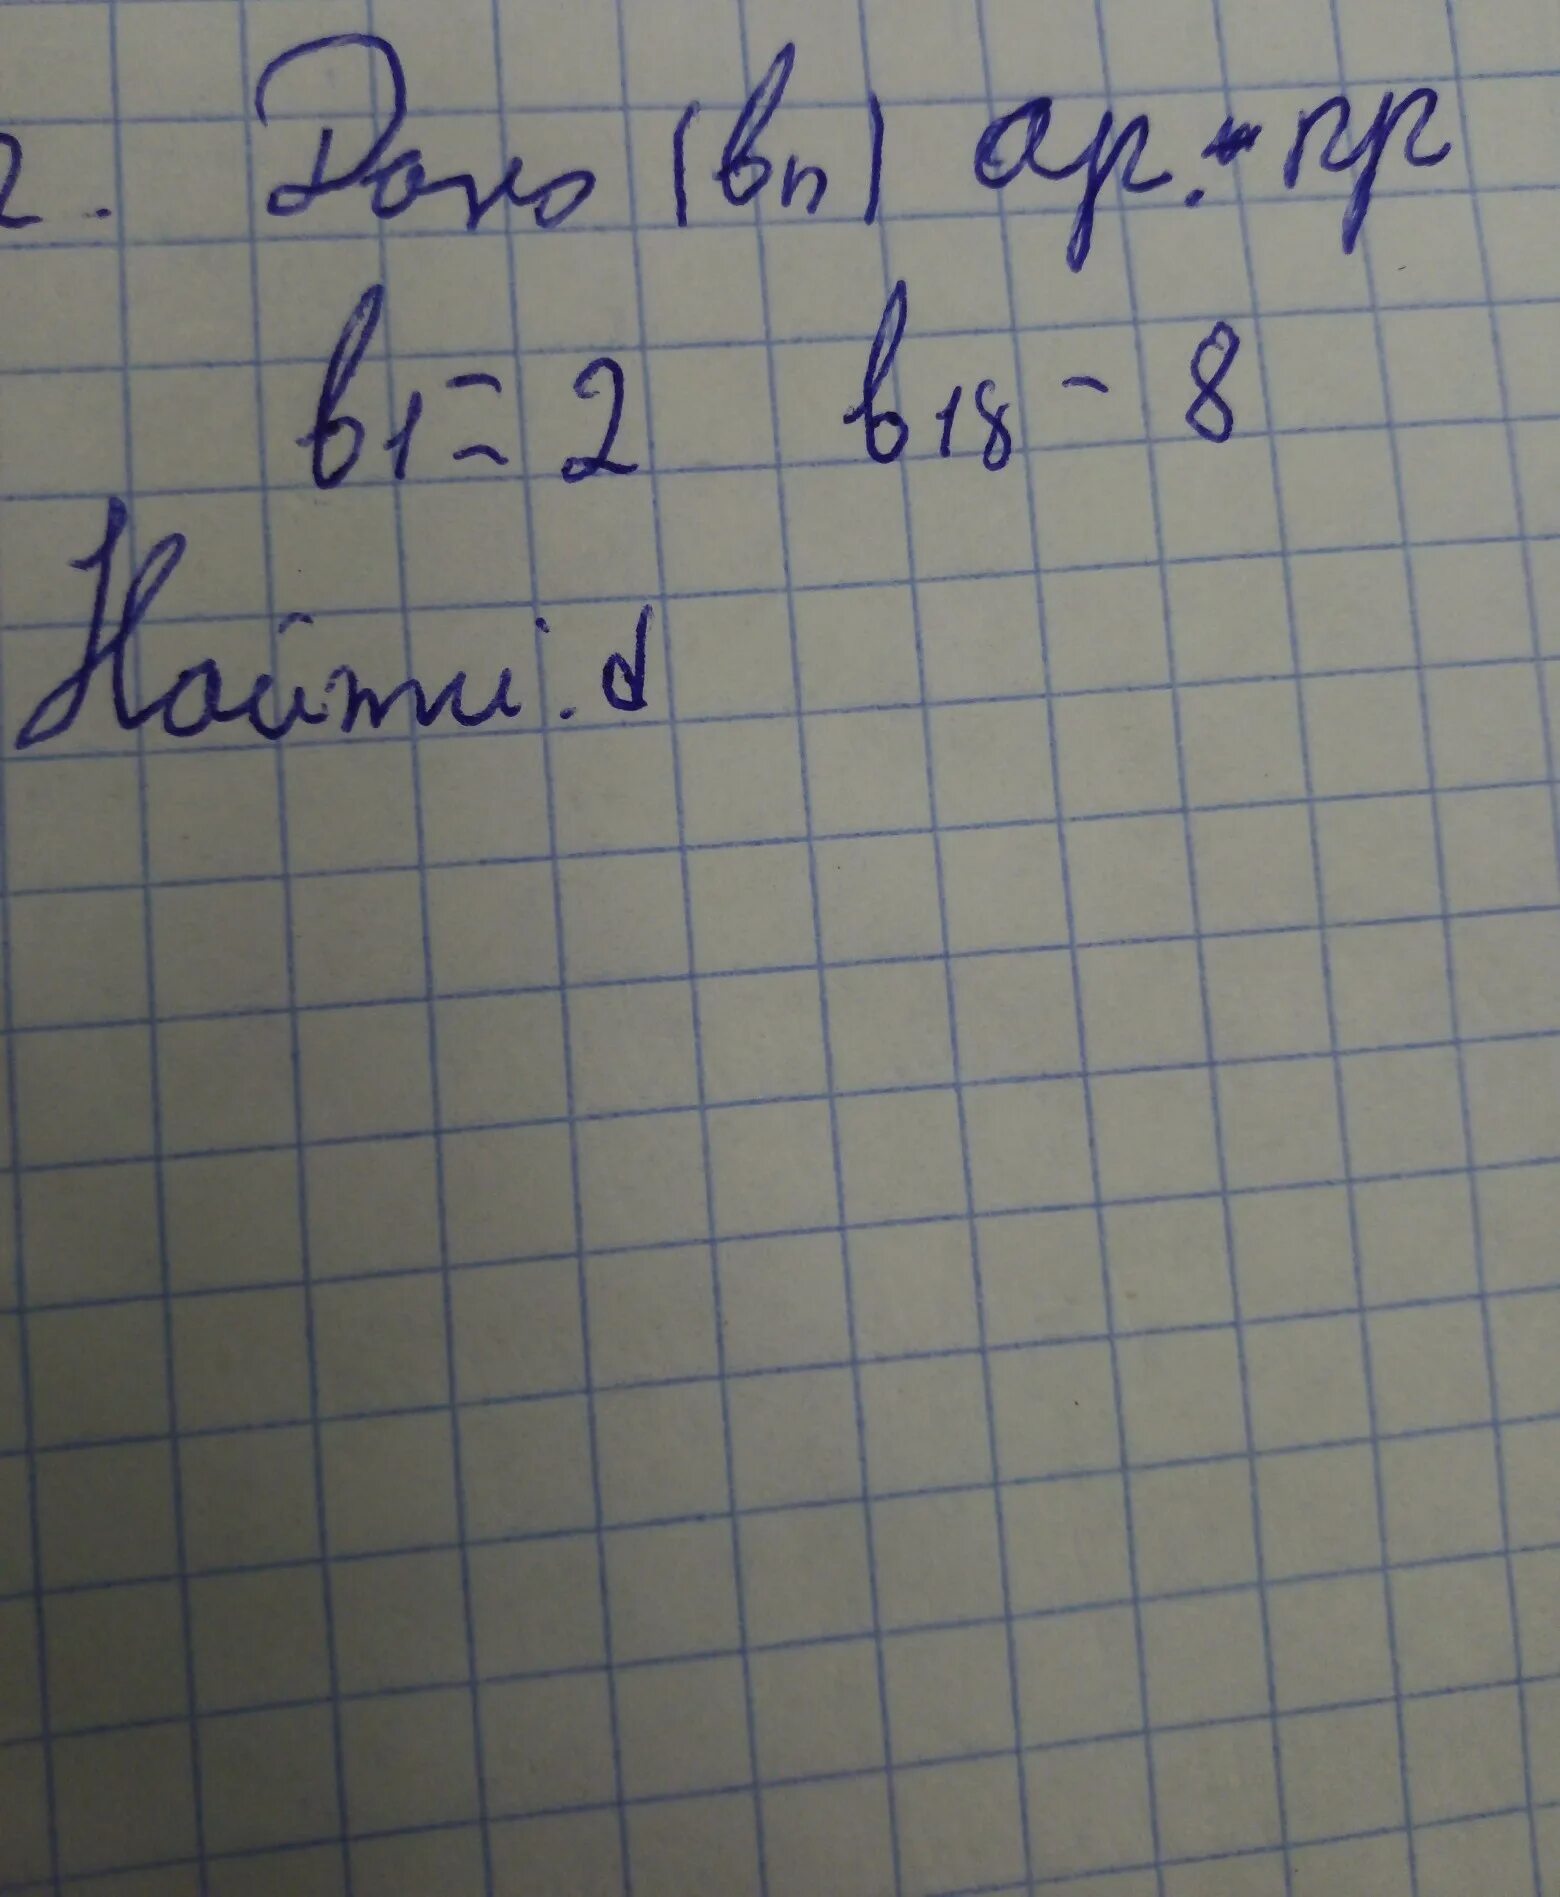 2. Дано (bn) ар. - пр
b1 = 2 b18 - 8
Найти. d